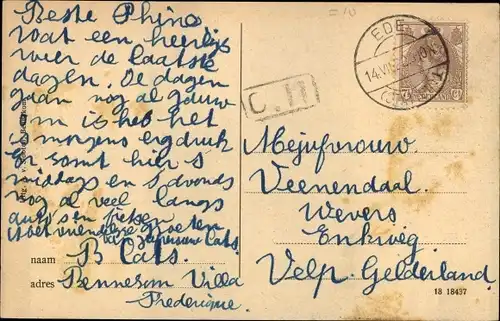 Beste Phine
Wat een heerlijk
weer de laatste
dagen. De dagen
gaan nog al gauw
om is het het
is morgens erg druk
En komt hier s
middags en s avonds
nog al veel langs
auto's en fietsen
groeten
van Juffrouw Cats.
naam B Cats.
adres Pennesom Villa
Frederique.
EDE
14.VII
C.II
Mejufvrouw
Veenendaal
Wevers
Enkweg
Velp. Gelderland
18 18437